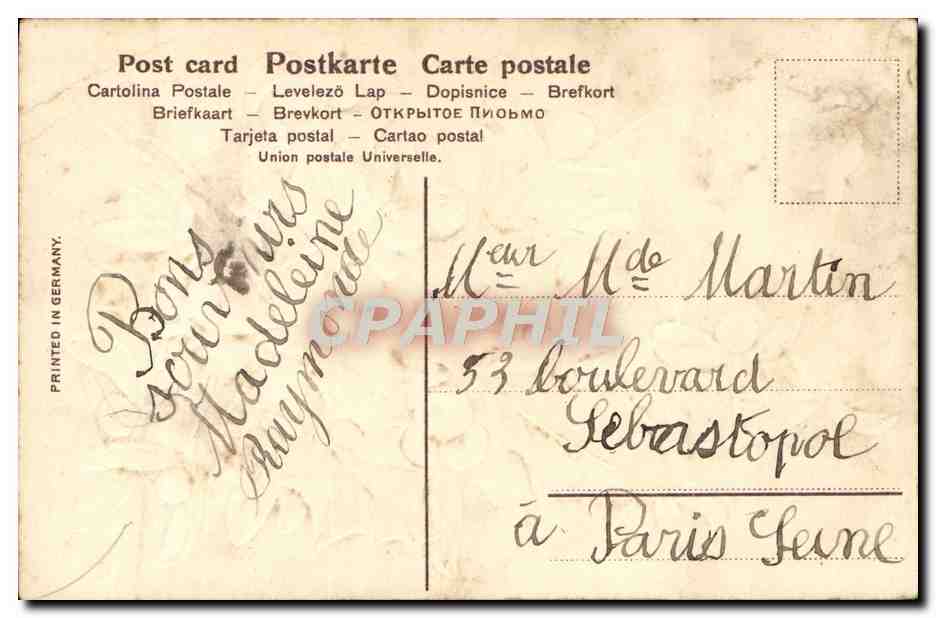 Post card Postkarte Carte postale
Cartolina Postale – Levelező Lap – Dopisnice – Brefkort
Briefkaart – Brevkort – ОТКРЫТОЕ ПИСЬМО
Tarjeta postal – Cartao postal
Union postale Universelle.
PRINTED IN GERMANY.
Bons
Madeleine
Raymonde
CPAPHIL
Meur Mde Martin
53 boulevard
Sebastopol
à Paris Seine